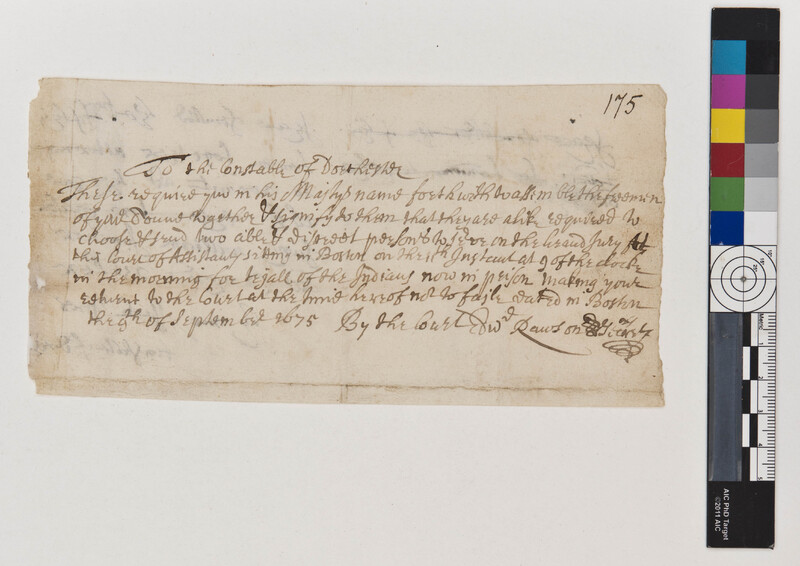 175
To the Constable of Dorchester
These require you in his Majtys name forthwith to assemble the freemen
of your Towne together & signify to them that they are alike required to
choose & send two able & discreet persons to serve on the Grand Jury At
the Court of Assistants sitting in Boston on the Instant at 9 of the clocke
in the morning for tryall of the Indians now in prison making your
returne to the Court at the time hereof not to faile dated in Boston
the 9th of September 1675 By the Court Edwd Rawson Secrety
AIC PhD Target
©2011 AIC